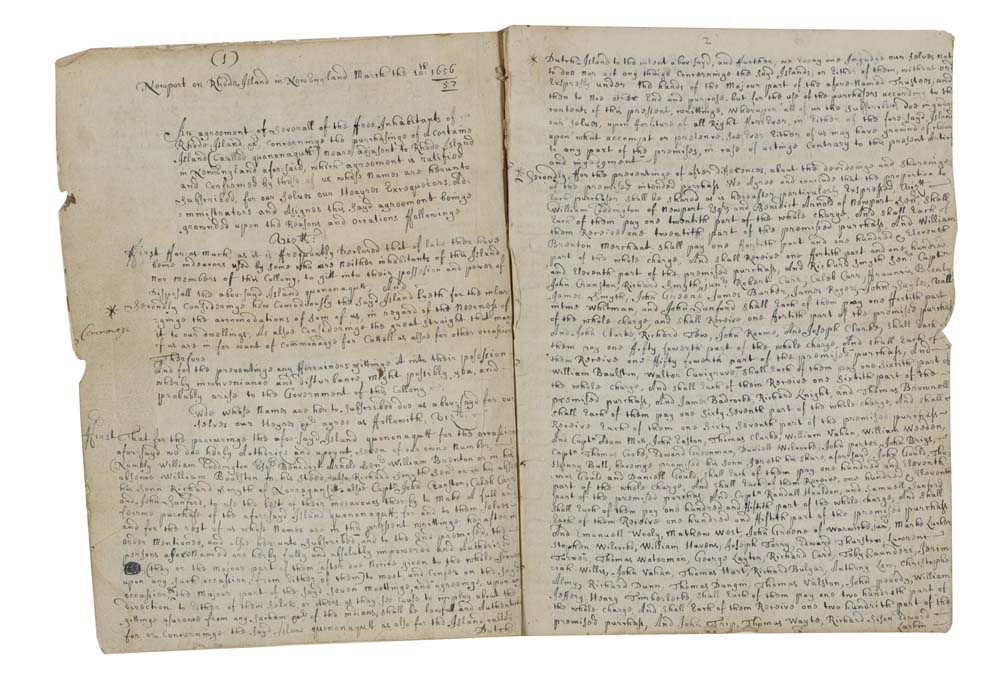 (1)
Newport on Rhode Island in New England March the 10th 1656
57
An agreement of Severall of the ffree Inhabitants of
Rhode Island &c Concerninge the purchasinge of a Certaine
Island Caulled quononagutt Neare adjasent to Rhode Island
in New England aforsaid, which agreement is ratified
and Confirmed by those of us whose Names are hereunto
Subscribed, for our Selves our Heayres Exequetors, Ad-
ministrators and Asignes this Sayd agreement beinge
grownded upon the Reasons and Occations ffollowinge
First ffor as Much as it is ffrequently declared that of late there have
bene indeavors used by some who are Neither inhabitants of this Island,
Nor Members of this Collony, to gitt into their possession and power of
disposall the abovesayd Island quononagutt, And
* Secondly Considering how Comodiously the Sayd Island Lyeth for the inlar-
ginge the accomodations of Som of us, in regard of the Neerness of
it to our dwellings, As also Consideringe the great straight that many
of us are in for want of Commonage for Cattell as also for other occations
Therfore
And for the preventinge any fforrainors gittinge it into their posession
wherby inconveniance and disturbance, Might possibly, yea, and
probably arise to the Government of this Collony
Wee whose Names are here to Subscribed doe as abovesayd for our
selves our Heyres &c agree as ffolloweth, Viz
First That for the procuringe the aforsayd Island quononagutt for the occasion
aforsayd, we doe herby Authorise and apoynt Seven of our owne Number
(Namely William Coddington Esqr Benidict Arnold Senr William Brenton or in his
absence William Baulston in his Stede, also Richard Smyth Senr or in his absence
his Sonn Richard Smyth of Narragansett also Captt John Cranston, Caleb Carr
and John Sanford, to use the best of their indeavours therby to Make a full and
ferme purchase of the aforesayd Island quononagutt for and to them selves
and for the rest of us whose Names are in this pressent writtinge herafter in
order Mentioned, and also hereunto Subscribed and to the End promised, the
persons afore Named are herby fully and absolutly impowered and Authorized
(they or the Majour part of them after due Notice given to the whole Seven
upon any such occasion from Either of them) to meet and Confer on the sayd
occasion the Majour part of the sayd Seven Meettinge, and agreeinge, upon any
direction to Either of them Selves, or others, as they see cause to imploy about the
gittinge asurance from any Sacham &c of the indians, shall be lawfull and Authentick
for or Concerninge the sayd Island quononagutt as also for the Island called
Dutch
2
* Dutch Island to the intent abovsayd, and ffurther, we Every one Ingadge our selves Not
to doe nor act any thinge Concerninge the sayd Islands, or Either of them, without or
Expressly under the hands of the Majour part of the afore Named Trustees, and
then to Noe other End and purpose, but for the use of the purchasers according to the
contents of this present, writtinge, Wherupon all of us the Subscribers doe ingadge
our selves, upon forfiture of all Right Howsever, in Either of the foresayd Islands
upon what accompt or pretence soe Ever Either of us may have grownd of them
or any part of the premises, in case of actinge Contrary to this present Artickle
and ingagement
* Secondly, ffor the preventinge of after differences, about the devidinge and Sharinge
of the promised intended purchase We agree and conclude that the proportion to
Each purchaser shall be shared as is hereafter particularly Expressed Viz
William Coddington of Newport Esqr and Benidict Arnold of Newport Senr, Shall
Each of them pay one twentith part of the whole charge, and shall Each of
them Receive one twentith part of the promised purchase, And William
Brenton Merchant, shall pay one ffortith part and one hundred & Eleventh
part of the whole charge, And shall Receive one ffortith part and one hundred
and Eleventh part of the promised purchase, and Richard Smyth Senr Captt
John Cranston, Richard Smyth, junr Robert Carr, Caleb Carr, ffrauncis Brinly
James Smyth, John Greene, James Barker, James Rogers, John Sayles, Vall-
intine Whitman, and John Sanford shall Each of them pay one ffortith part
of the whole charge, and shall Receive one ffortith part of the promised purchase
And John Clarke, Richard Tew, John Roame, and Joseph Clarke, shall Each of
them pay one ffifty fowerth part of the whole charge, And shall Each of
them Receive one ffifty fowerth part of the promised purchase, And
William Baulston, Walter Cunigrave shall Each of them pay one sixtith part of
the whole charge, And shall Each of them Receive one Sixtith part of the
promised purchase, And James Badcocke, Richard Knight, and Thomas Brownell
Shall Each of them pay one Sixty Seventh part of the whole charge, and shall
Receive Each of them one Sixty Seventh part of the promised purchase
And Captt Adam Mott, John Easton, Thomas Clarke, William Vahan, William Weeden,
Captt Thomas Coke, Edward Greenman, Daniell Wilcocks, John porter, John Brigs,
Henry Bull, havinge promised his Sonn Joreth his share, aforesayd, John Gould, Tho-
mas Gould and Daniell Gould, Shall Each of them pay one hundred and Eleventh
part of the whole charge, And Shall Each of them Receive, one hundred & Eleventh
part of the promised purchase And Captt Randall Houlden, and Samuell Sanford
Shall Each of them pay one hundred and ffiftith part of the whole charge, And Shall
Each of them Receive one hundred and ffiftith part of the promised purchase
And Emanuell Wooly, Mathew West, John Greene of Warwicke, junr, Marke Lucker
Stephen Wilcocks, William Havens, Joseph Torry, Edward Thurston, Lawrence
Turner, Thomas Waterman, George Lawton, Richard Card, Toby Saunders, Jerim-
iah Willis, John Vahan, Thomas Hart, Richard Bulgar, Anthony Low, Christopher
Almy, Richard Dunn, Thomas Dungin, Thomas Valston, John peabody, William
Jeffery, Henry Timberlacke Shall Each of them pay one two hundrith part of
the whole charge, And Shall Each of them Receive one two hundrith part of the
promised purchase, And John Trip, Thomas Wayte, Richard Sisson Edward
Larkin